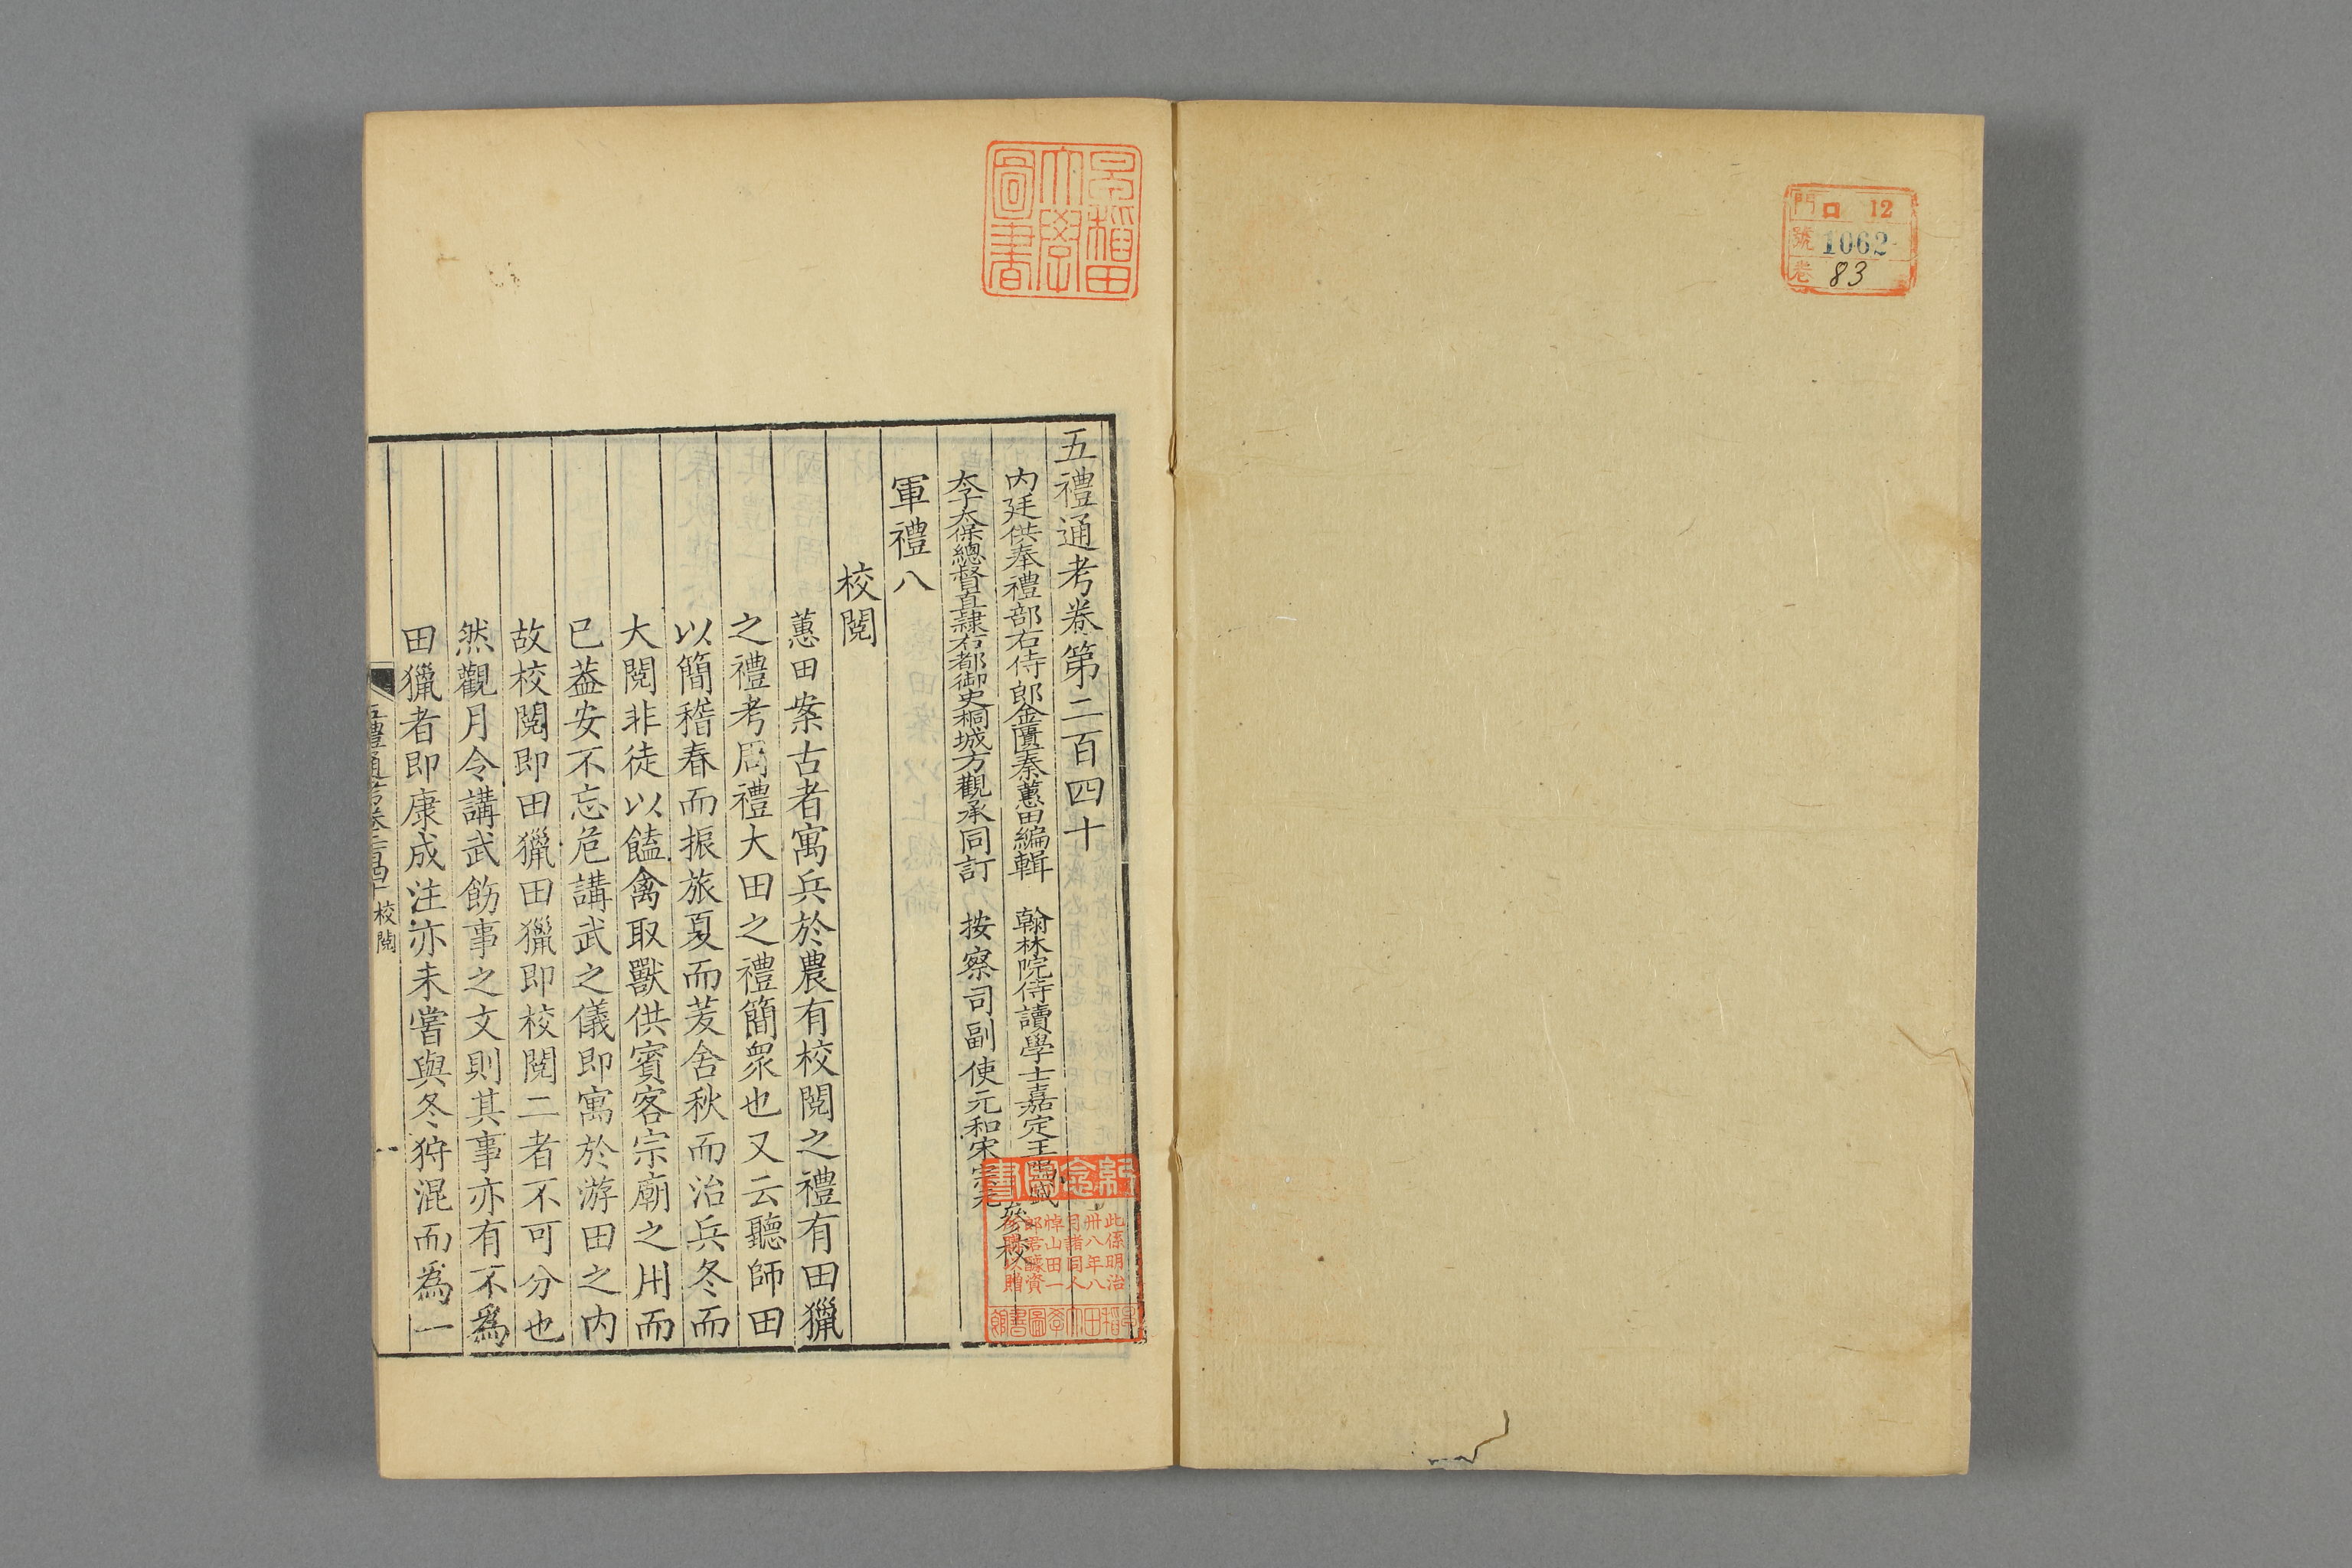 門 口 12
號 1062
卷 83
早稻田大學圖書
五禮通考卷第二百四十
內廷供奉禮部右侍郎金匱秦蕙田編輯 翰林院侍讀學士嘉定王鳴盛
太子太保總督直隸右都御史桐城方觀承同訂 按察司副使元和宋宗元
參校
軍禮八
校閱
蕙田案古者寓兵於農有校閱之禮有田獵
之禮考周禮大田之禮簡眾也又云聽師田
以簡稽春而振旅夏而茇舍秋而治兵冬而
大閱非徒以饁禽取獸供賓客宗廟之用而
已葢安不忘危講武之儀即寓於游田之内
故校閱即田獵田獵即校閱二者不可分也
然觀月令講武飭事之文則其事亦有不爲
田獵者即康成注亦未嘗與冬狩混而爲一
五禮通考卷二百四十 校閱
一
紀念圖書
此係明治
卅八年八
月諸同人
悼山田一
郎君醵資
所購以贈
早稻田大學圖書館